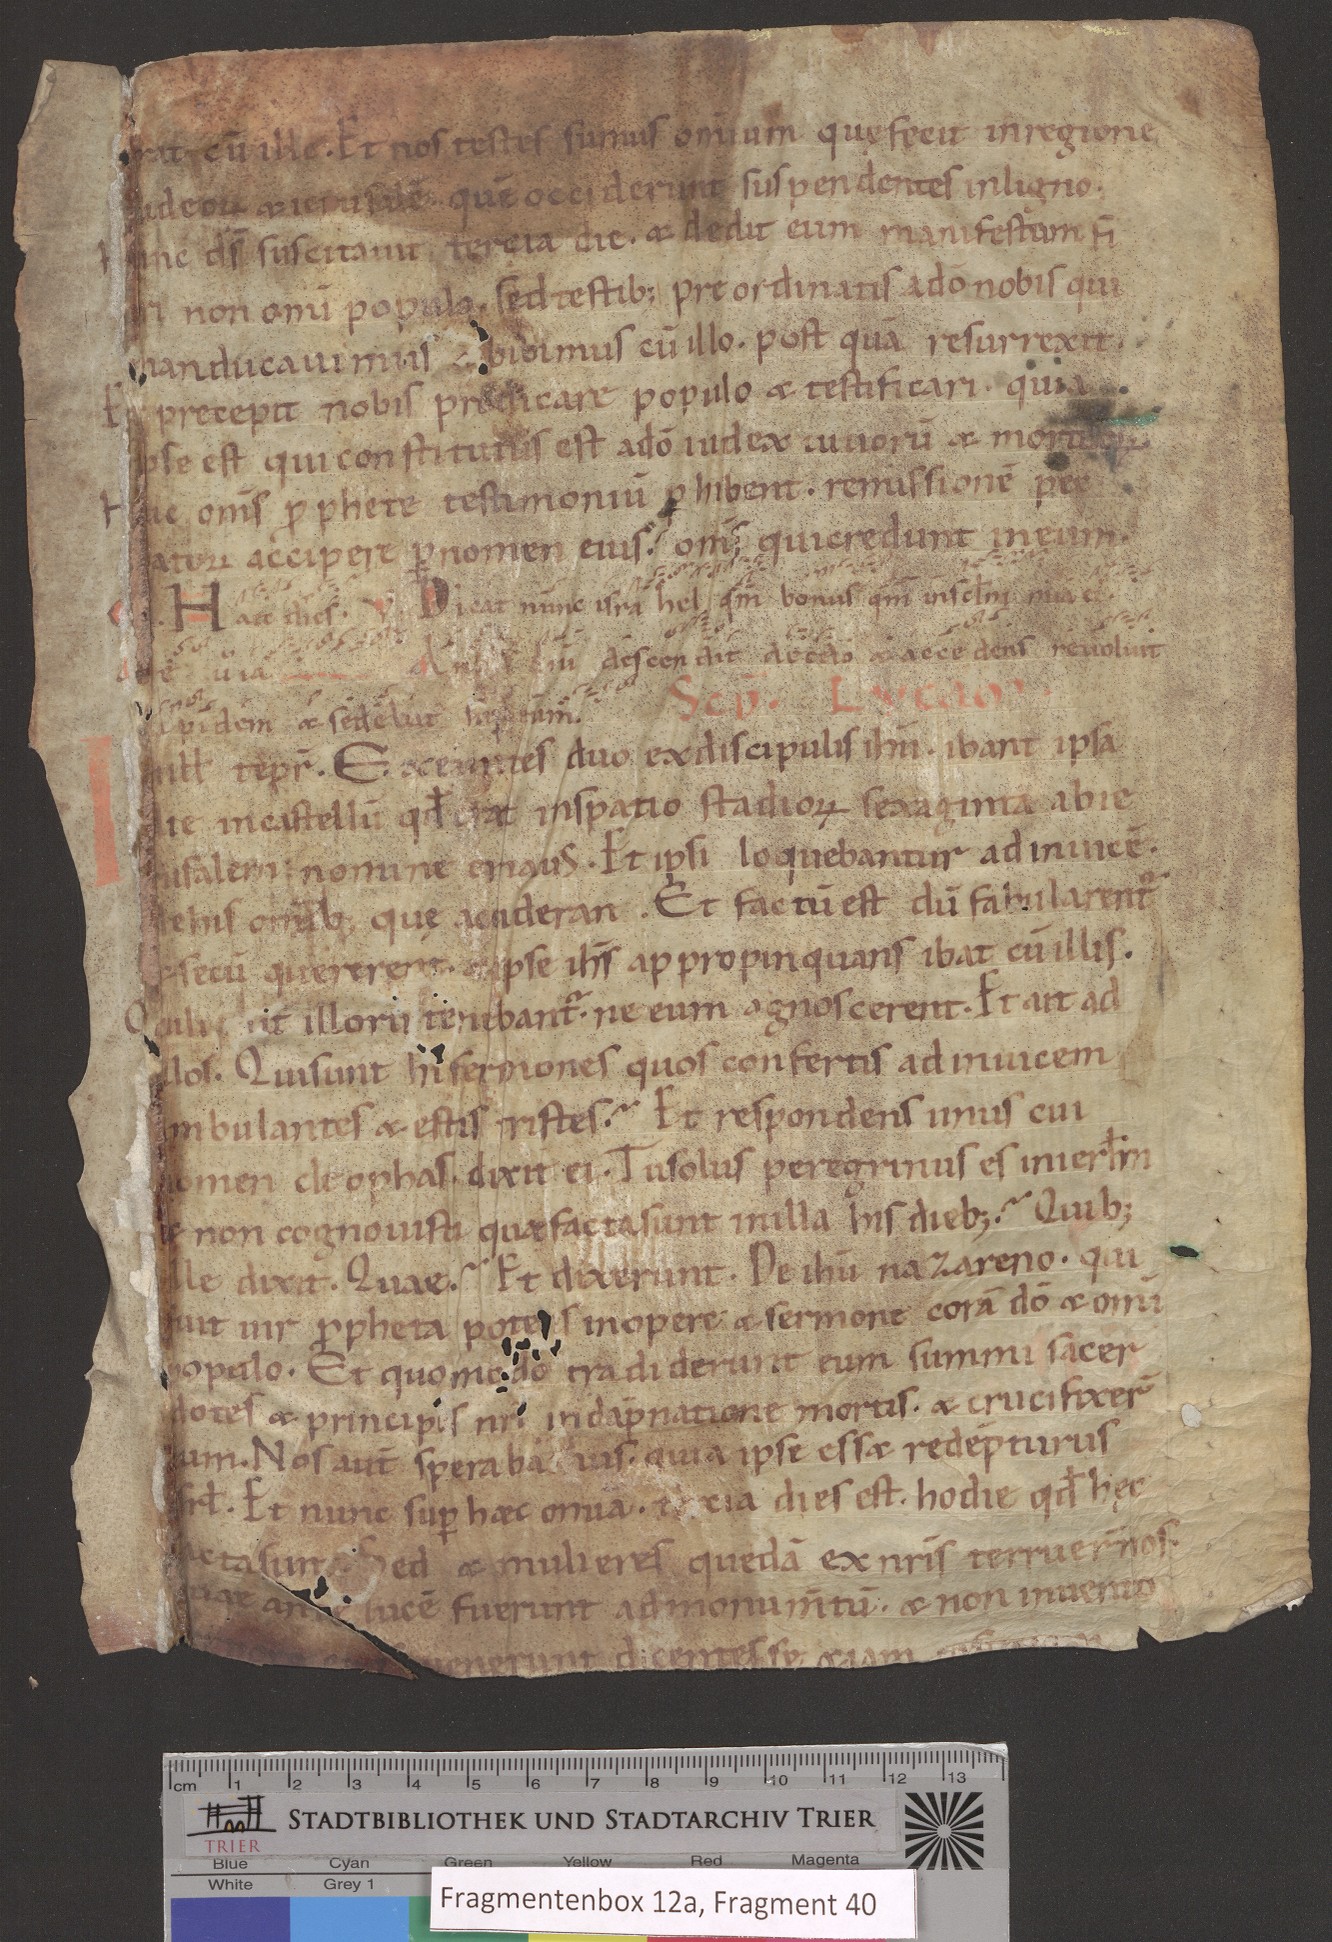 rat cū illo. Et nos testes sumus omium quę fecit inregione
udeoꝝ & ierusalē. quē occiderunt suspendentes inligno.
unc ds̄ suscitauit tercia die. & dedit eum manifestum fi
ri non omī populo. sed testib; preordinatis adō nobis qui
manducauimus & bibimus cū illo. post quā resurrexit.
Et precepit nobis predicare populo & testificari. quia
ipse est qui constitutus est adō iudex uiuorū & mortuoꝝ
Huic om̄s ꝓphete testimoniū ꝑhibent. remissionē pec
catoꝝ accipere ꝑ nomen eius. om̄s qui credunt in eum.
Haec dies. V Dicat nunc israhel qm̄ bonus qm̄ insc̄lm mīa ei.
uia descendit decelo & accedens reuoluit
lapidem & sedebat sup eum. Scd̄. Lucam
In ill tēpr. Exeuntes duo exdiscipulis ihū. ibant ipsa
die incastellū qd̄ erat inspatio stadioꝝ sexaginta abie
rusalem nomine emaus. Et ipsi loquebantur adinuicē.
dehis omīb; quę acciderant. Et factū est dū fabularent
& secū quererent. & ipse ihs̄ appropinquans ibat cū illis.
Oculi aut illorū tenebant. ne eum agnoscerent. Et ait ad
illos. Qui sunt hi sermones quos confertis adinuicem
ambulantes & estis tristes. Et respondens unus cui
nomen cleophas. dixit ei. Tu solus peregrinus es inierlm
& non cognouisti quæ facta sunt inilla his dieb;. Quib;
ille dixit. Quae. Et dixerunt. De ihū nazareno. qui
fuit uir ꝓpheta potens inopere & sermone corā dō & omī
populo. Et quomodo tradiderunt eum summi sacer
dotes & principes nr̄i indāpnatione mortis. & crucifixer̄
eum. Nos aut̄ sperabamus. quia ipse ess& redēpturus
isrl. Et nunc suꝑ hæc omīa. tercia dies est. hodie qd̄ hęc
facta sunt. Sed & mulieres quedā exnr̄is terruer̄ nos.
quæ ante lucē fuerunt admonumtū. & non inuento
uenerunt dicentes se &iam
cm 1 2 3 4 5 6 7 8 9 10 11 12 13
STADTBIBLIOTHEK UND STADTARCHIV TRIER
TRIER
Blue Cyan Green Yellow Red Magenta
White Grey 1
Fragmentenbox 12a, Fragment 40